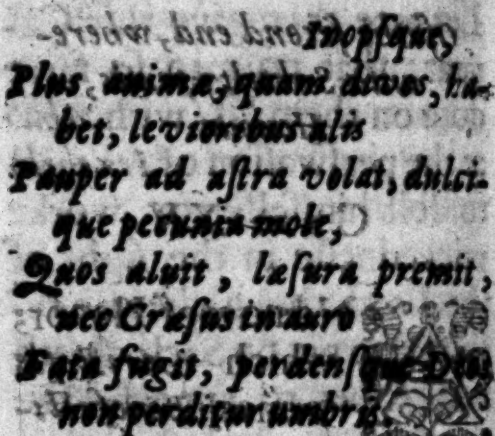 Inopſque,
Plus animæ, quam dives, ha-
bet, levioribus alis
Pauper ad aſtra volat, dulci-
que pecunia mole,
Quos aluit, læſura premit,
nec Cræſus in auro
Fata fugit, perdenſque Deos
non perditur umbris